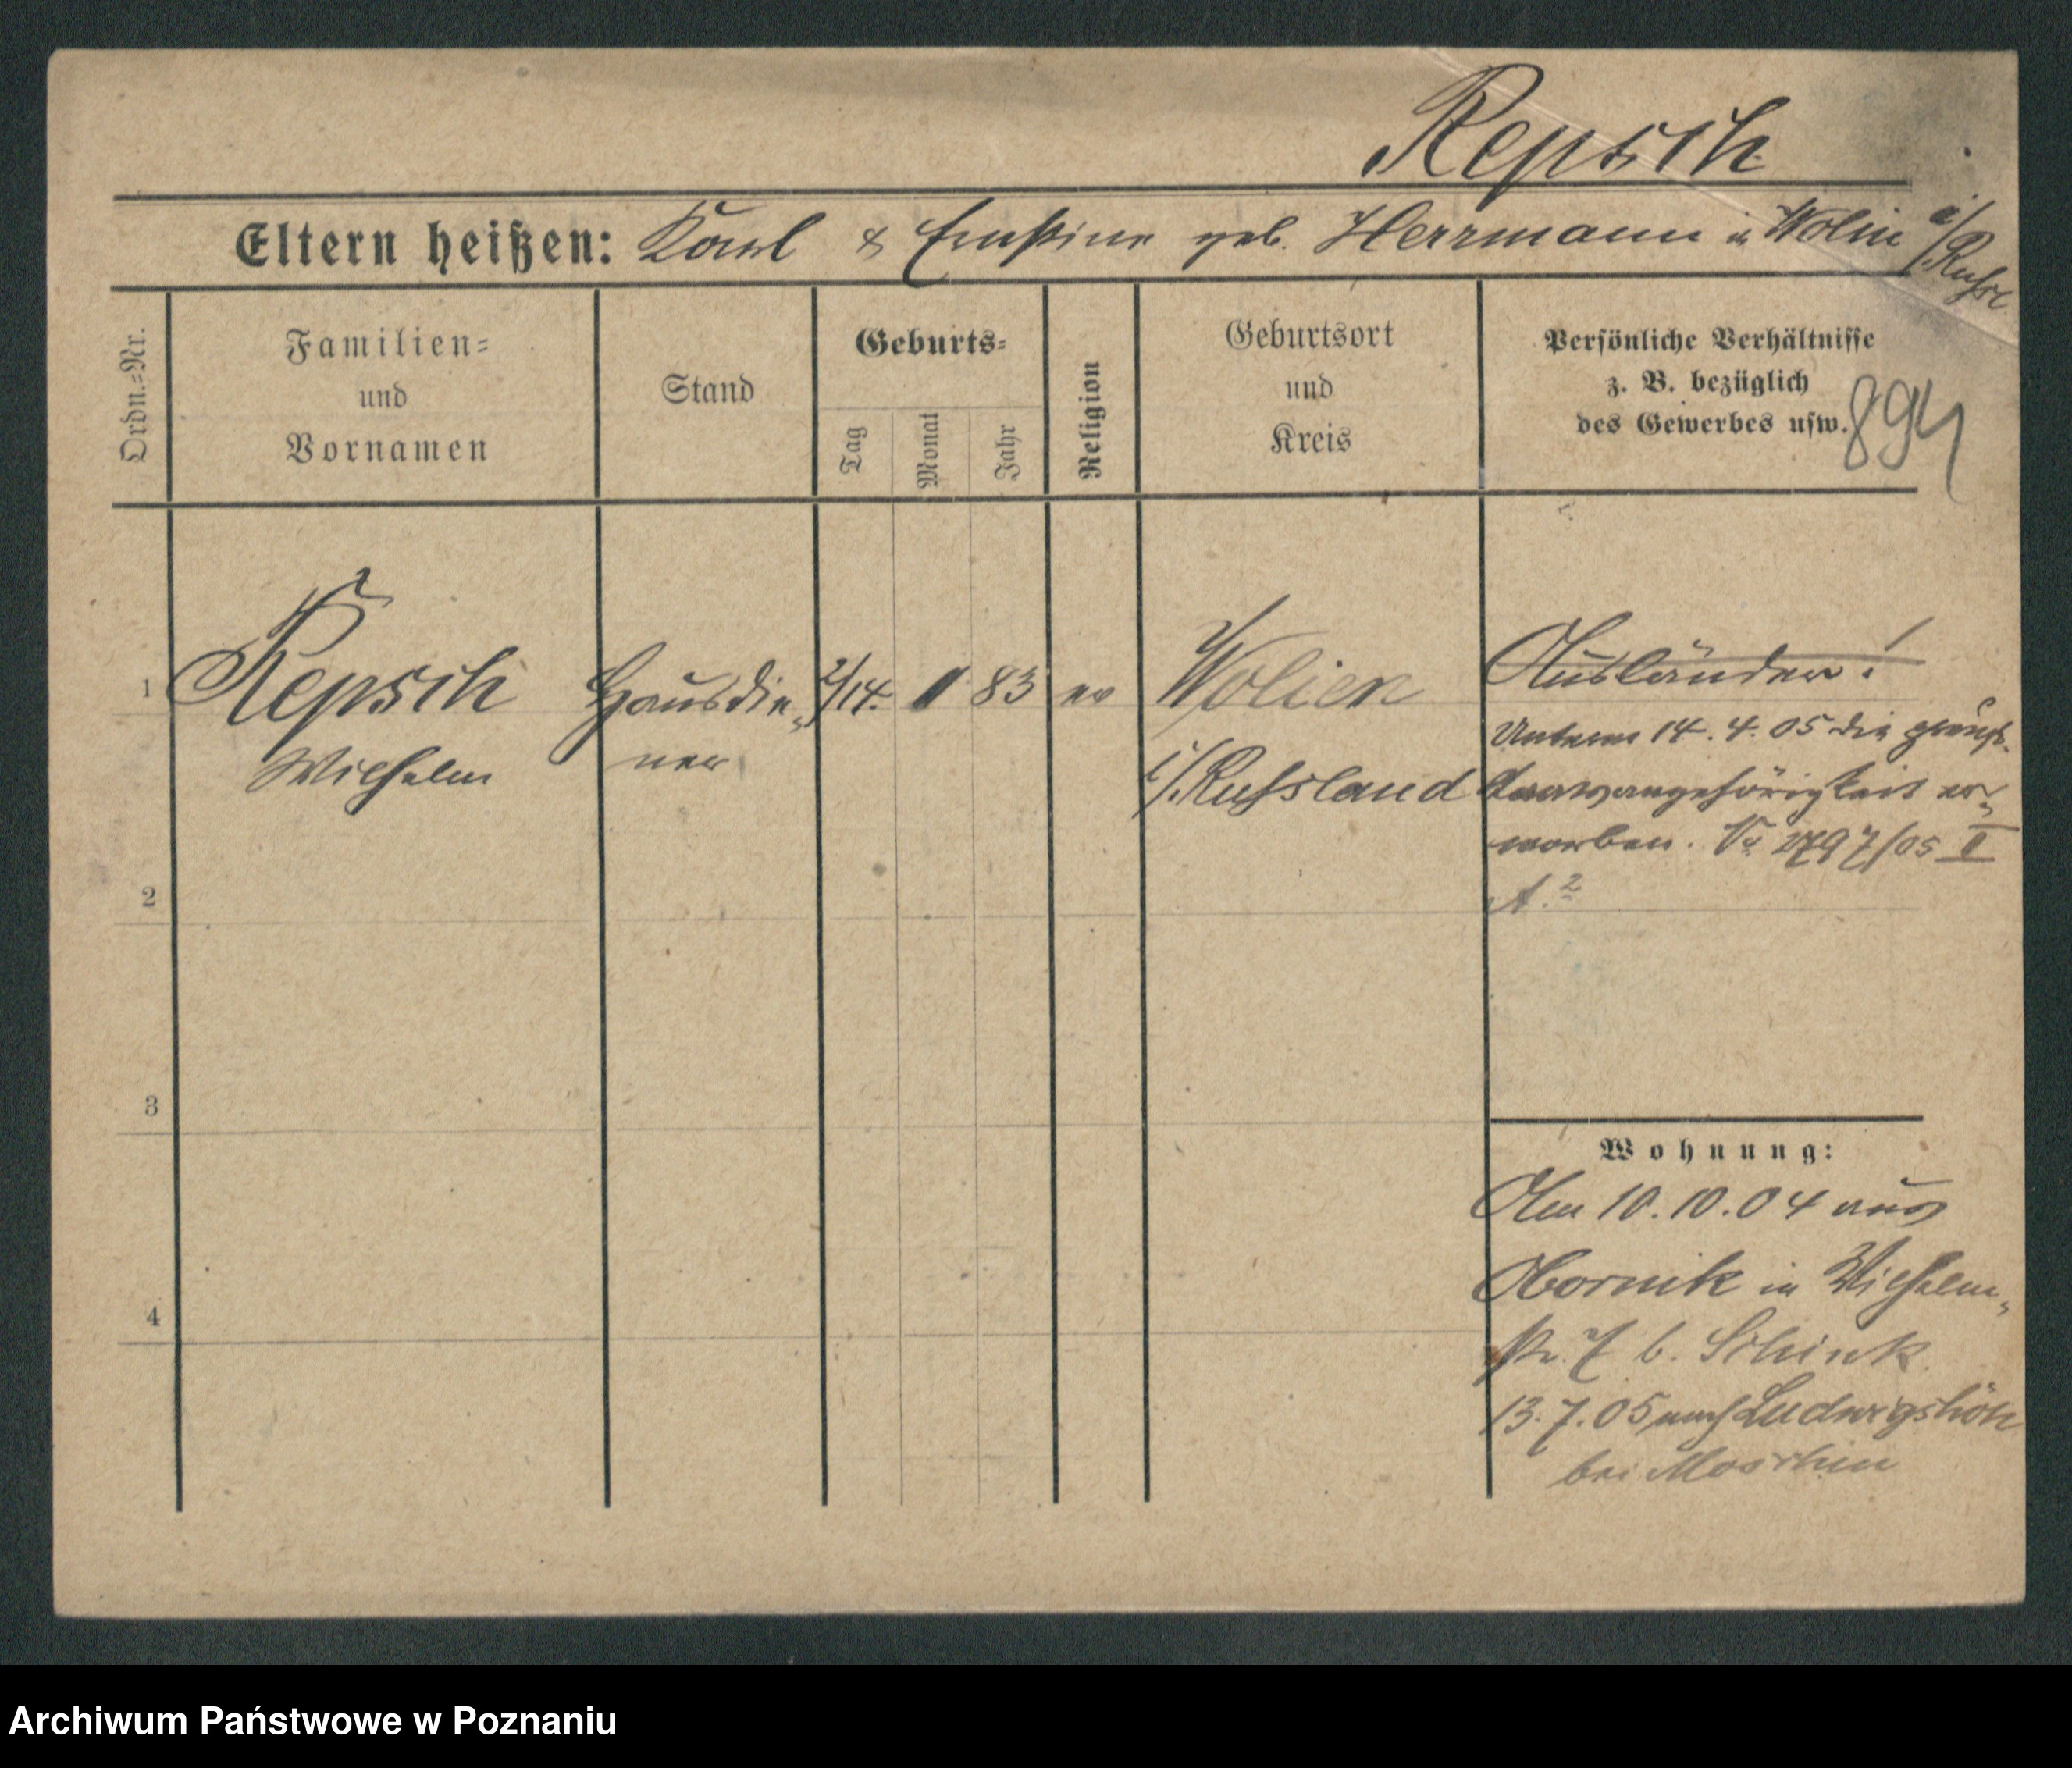 Repsch
Eltern heißen: Karl & Ernstine geb. Herrmann in Wolin i/Russl
Ordn.=Nr.
Familien=
und
Vornamen
Stand
Geburts=
Tag
Monat
Jahr
Religion
Geburtsort
und
Kreis
Persönliche Verhältnisse
z. B. bezüglich
des Gewerbes usw.
894
1 Repsch Hausdie- 2/14. 1 83 ev Wolien Ausländer!
Wilhelm ner i/Russland
Unterm 14. 4. 05 die preuß.
Staatsangehörigkeit er-
worben. 2797/05 II
2
A.2
3
4
Wohnung:
Am 10.10.04 aus
Obornik in Wilhelm-
str. 7 b. Schink
13.7.05 nach Ludwigshöh
bei Moschin
Archiwum Państwowe w Poznaniu